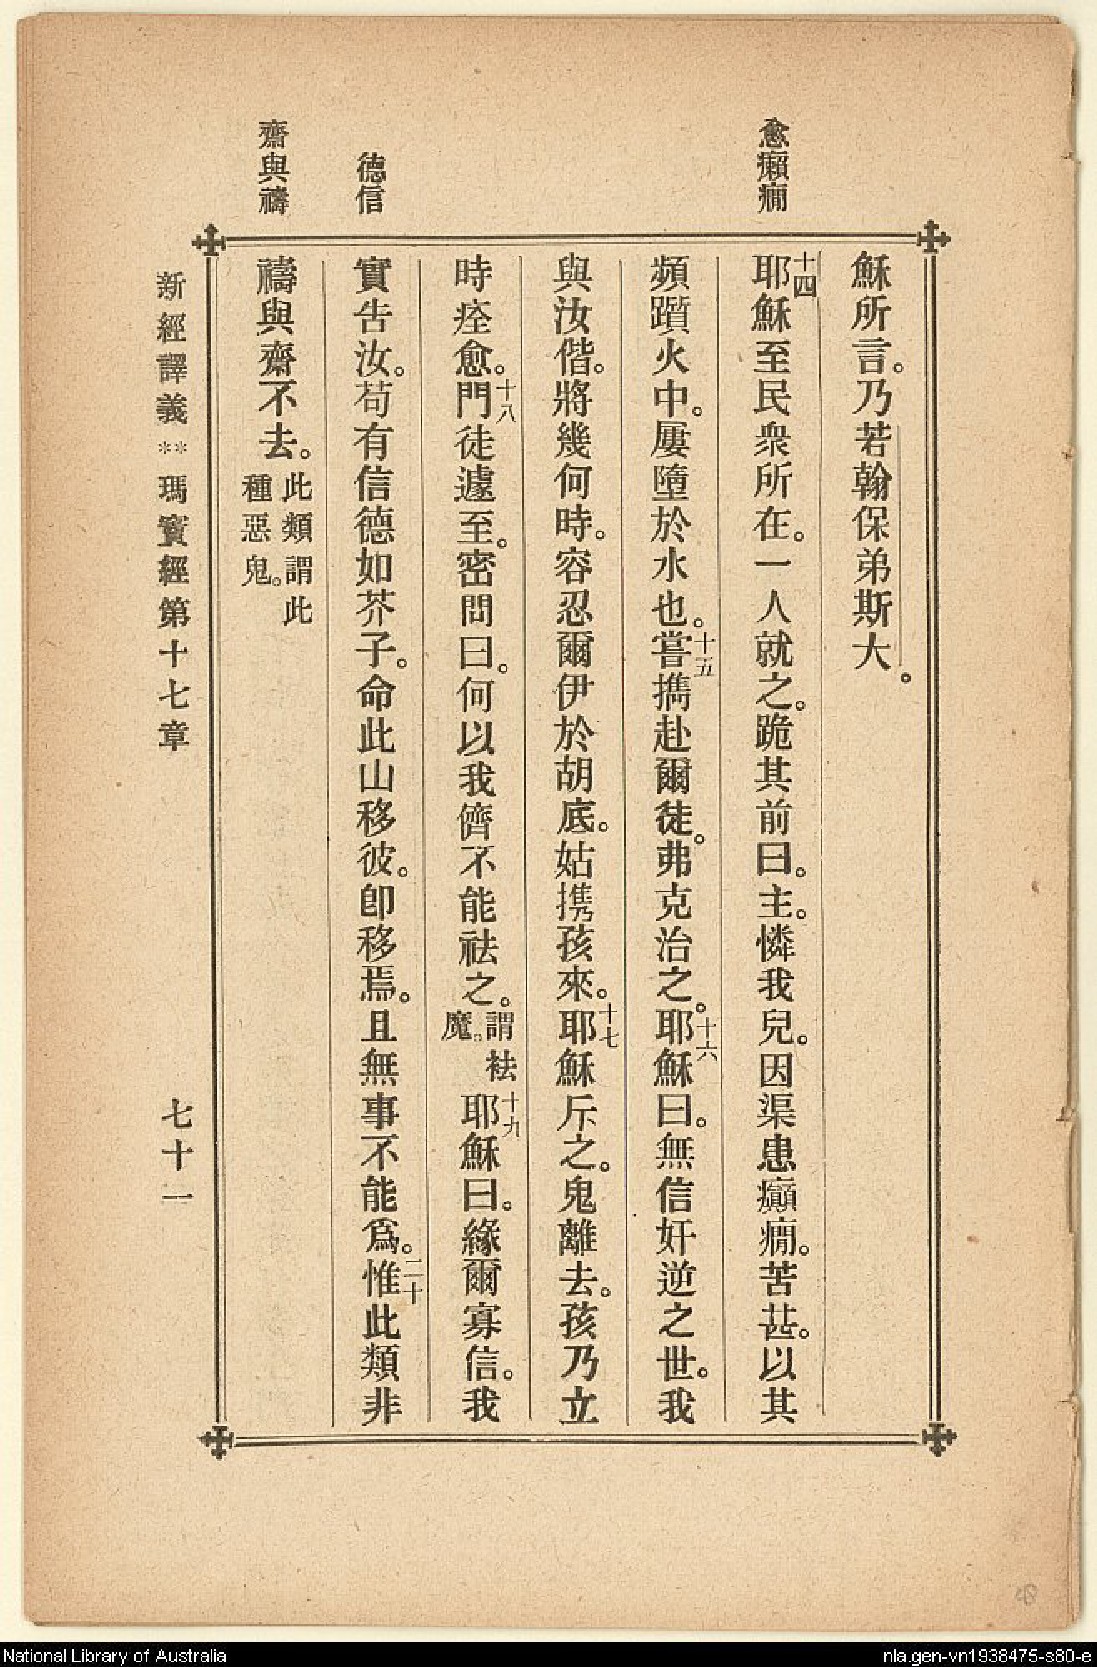 愈癩癇
德信
齋與禱
穌所言。乃若翰保弟斯大。
十四耶穌至民衆所在。一人就之。跪其前曰。主。憐我兒。因渠患癲癇。苦甚。以其
頻躓火中。屢墮於水也。十五嘗攜赴爾徒。弗克治之。十六耶穌曰。無信奸逆之世。我
與汝偕。將幾何時。容忍爾伊於胡底。姑携孩來。十七耶穌斥之。鬼離去。孩乃立
時痊愈。十八門徒遽至。密問曰。何以我儕不能祛之。謂祛魔。十九耶穌曰。緣爾寡信。我
實告汝。苟有信德如芥子。命此山移彼。卽移焉。且無事不能爲。二十惟此類非
禱與齋不去。此類謂此種惡鬼。
新經譯義**瑪竇經第十七章
七十一
National Library of Australia
nla.gen-vn1938475-s80-e